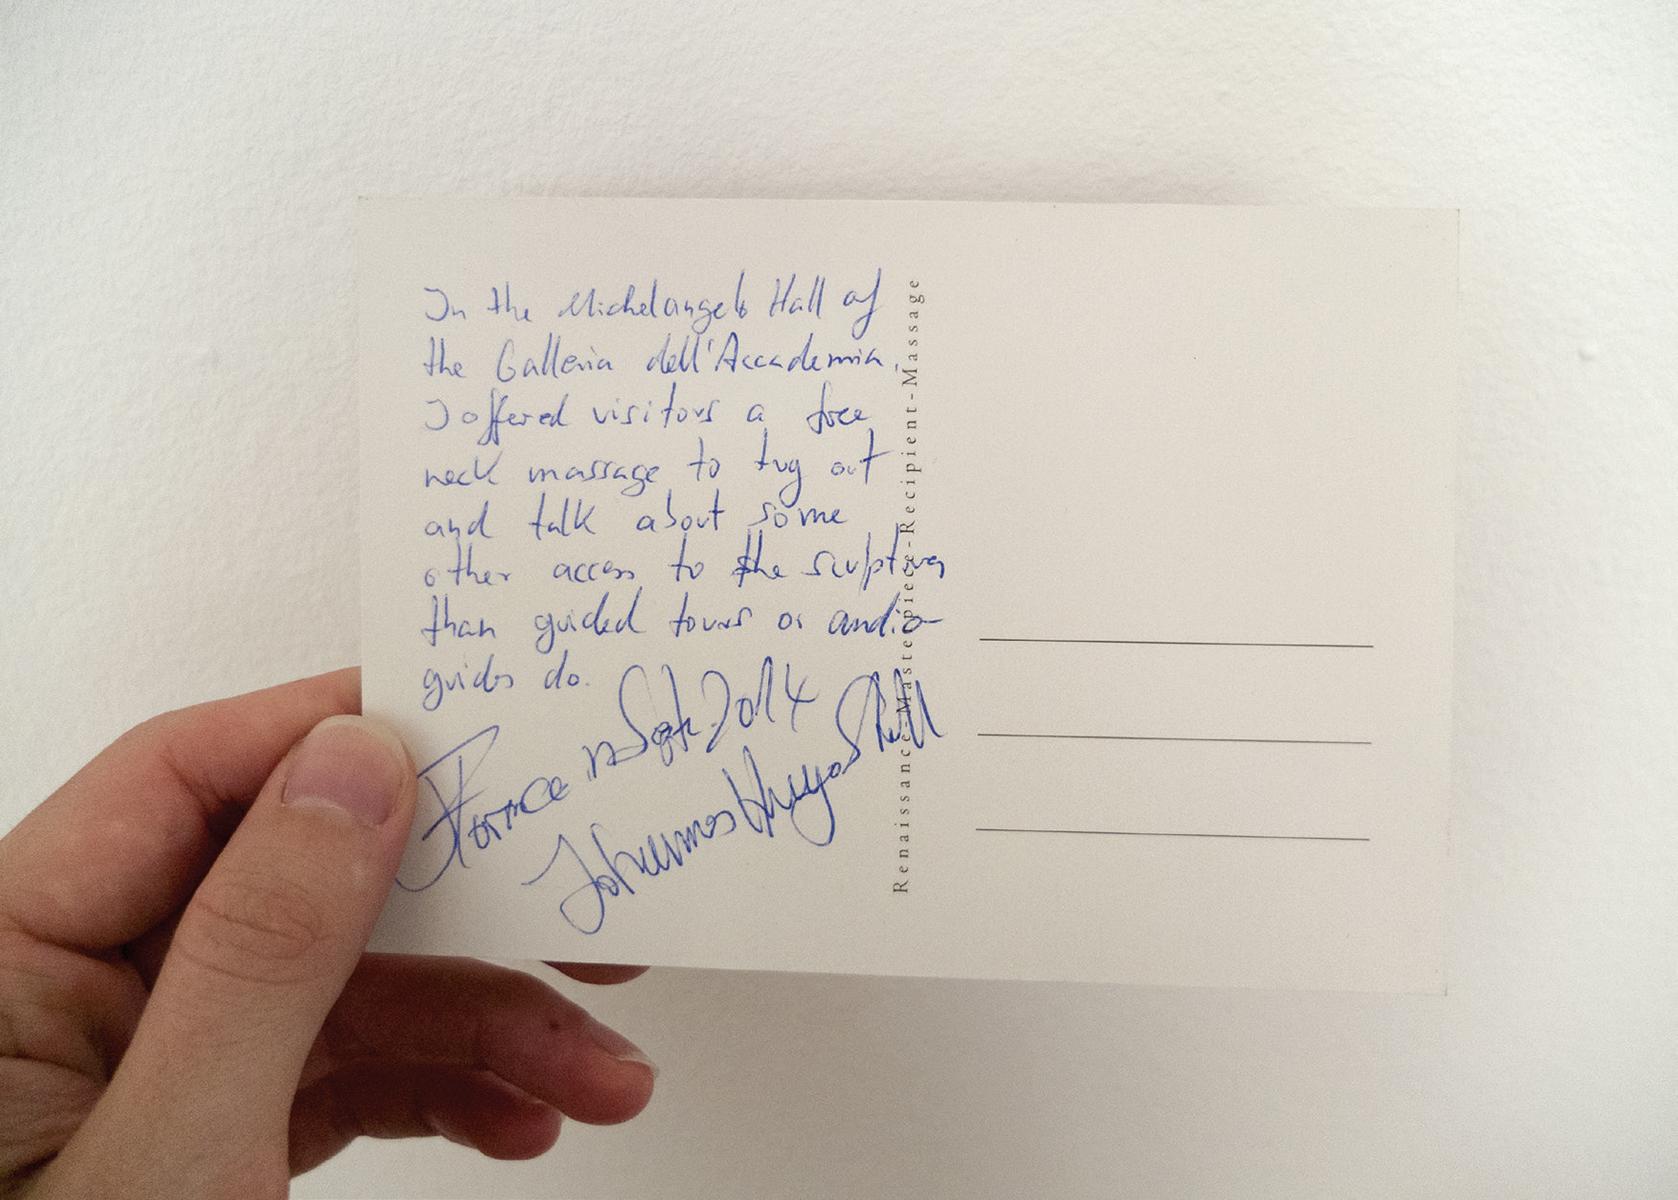 In the Michelangelo Hall of
the Galleria dell'Accademia,
I offered visitors a free
neck massage to tug out
and talk about some
other access to the sculptures
than guided tours or audio-
guides do.
Florence, Sept. 2014
Johannes Hugo Stoll
Renaissance-Masterpiece-Recipient-Massage